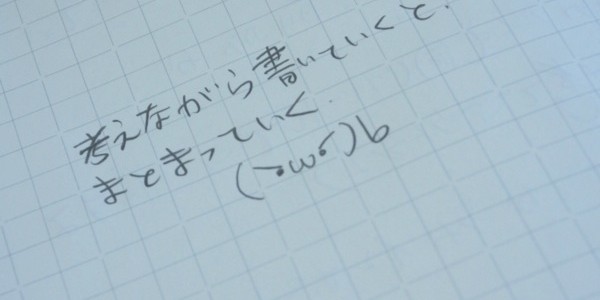 考えながら書いていくと.
まとまっていく.
(`･ω･´)b